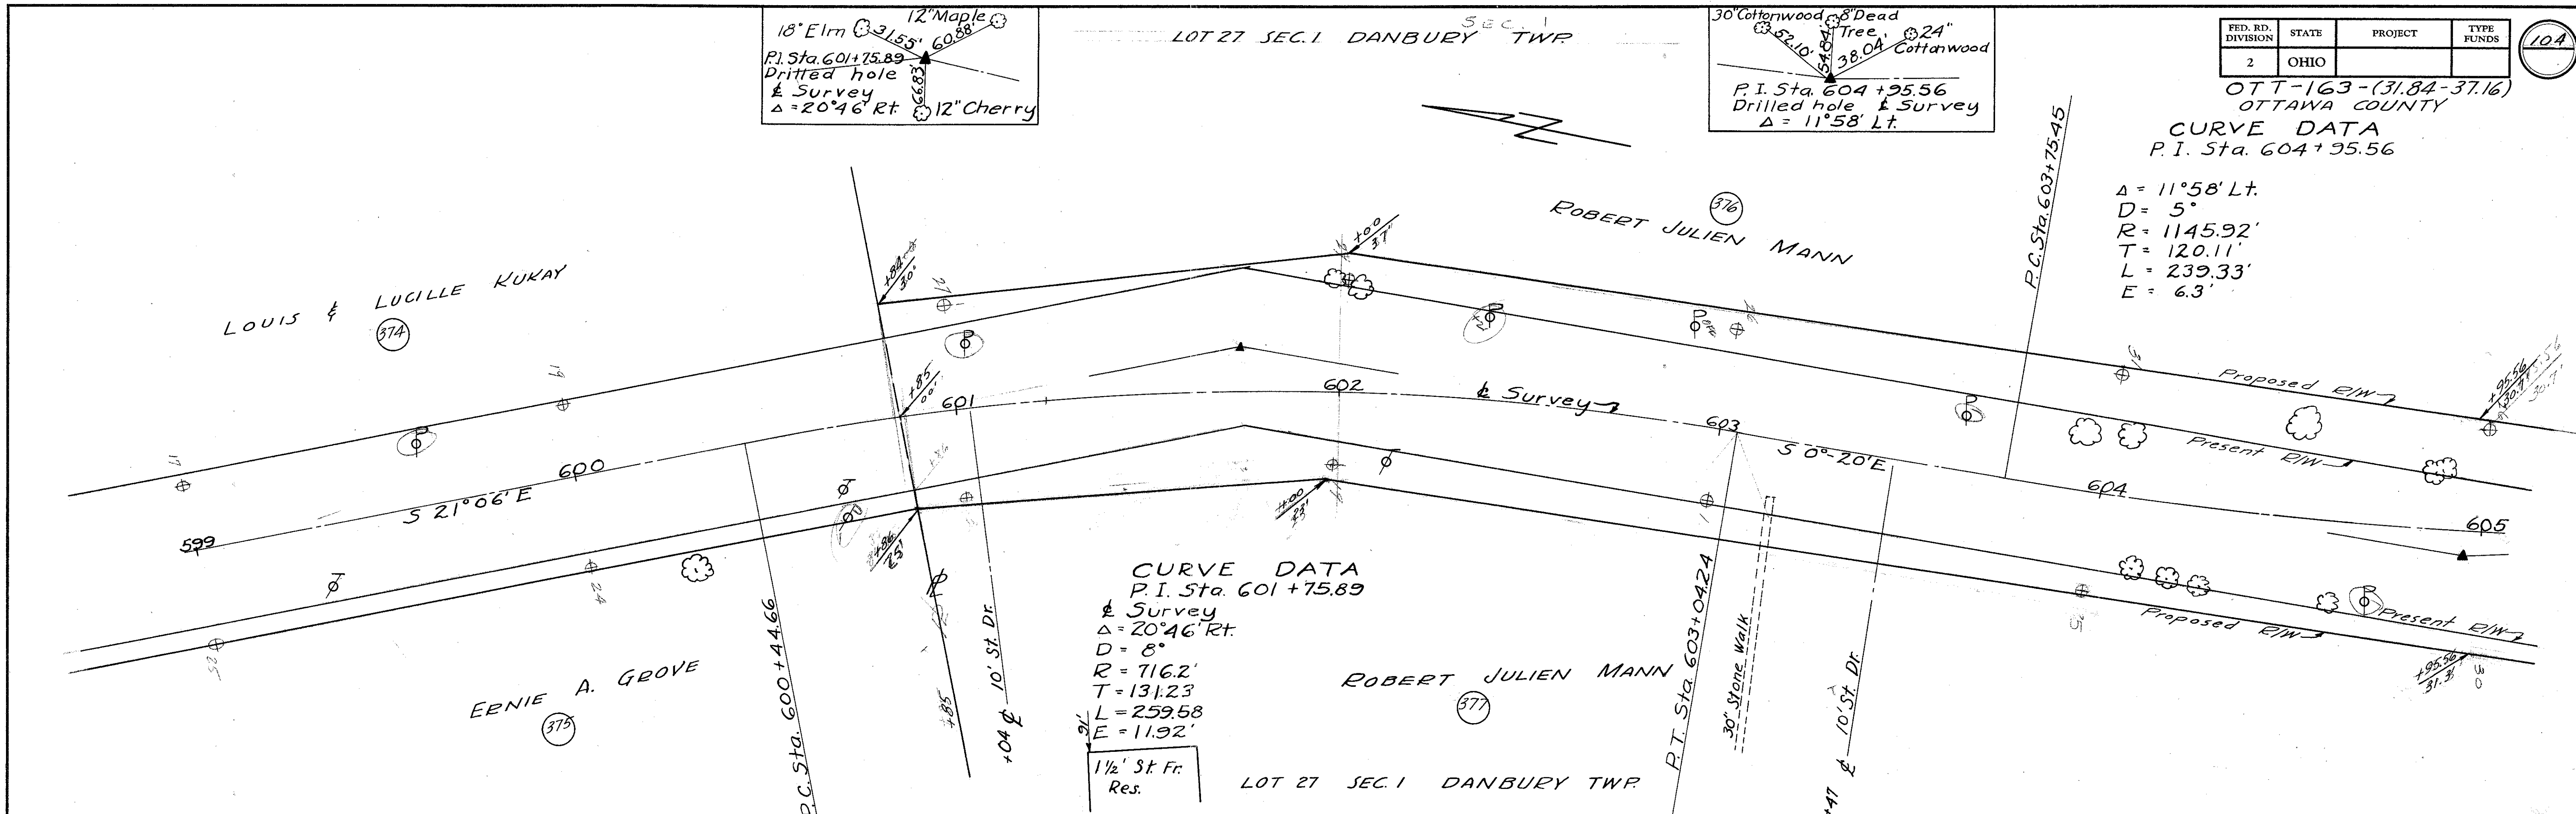 12" Maple
18" Elm
31.55'
60.88'
P.I. Sta. 601+75.89
Drilled hole
℄ Survey
Δ = 20°46' Rt.
66.83'
12" Cherry
SEC. 1
LOT 27 SEC. 1 DANBURY TWP.
30" Cottonwood
8" Dead
Tree
24"
Cottonwood
52.10'
54.84'
38.04'
P. I. Sta. 604 +95.56
Drilled hole ℄ Survey
Δ = 11°58' Lt.
FED. RD. DIVISION
STATE
PROJECT
TYPE FUNDS
2
OHIO
104
OTT-163-(31.84-37.16)
OTTAWA COUNTY
CURVE DATA
P. I. Sta. 604+95.56
Δ = 11°58' Lt.
D = 5°
R = 1145.92'
T = 120.11'
L = 239.33'
E = 6.3'
P.C. Sta. 603+75.45
ROBERT JULIEN MANN
376
LOUIS & LUCILLE KUKAY
374
+84
30'
27
+00
37'
+85
00'
17
19
599
600
601
602
603
604
605
℄ Survey
S 21°06' E
S 0°-20'E
Proposed R/W
Present R/W
+95.56
30.7'
+86
25'
+00
23'
24
25
+85
ERNIE A. GROVE
375
P.C. Sta. 600+44.66
+04 ℄ 10' St. Dr.
CURVE DATA
P. I. Sta. 601 +75.89
℄ Survey
Δ = 20°46' Rt.
D = 8°
R = 716.2'
T = 131.23
L = 259.58
E = 11.92'
91'
1½' St. Fr.
Res.
ROBERT JULIEN MANN
377
LOT 27 SEC. 1 DANBURY TWP.
P.T. Sta. 603+04.24
30" Stone Walk
+47 ℄ 10' St. Dr.
Proposed R/W
Present R/W
+95.56
31.3'
30